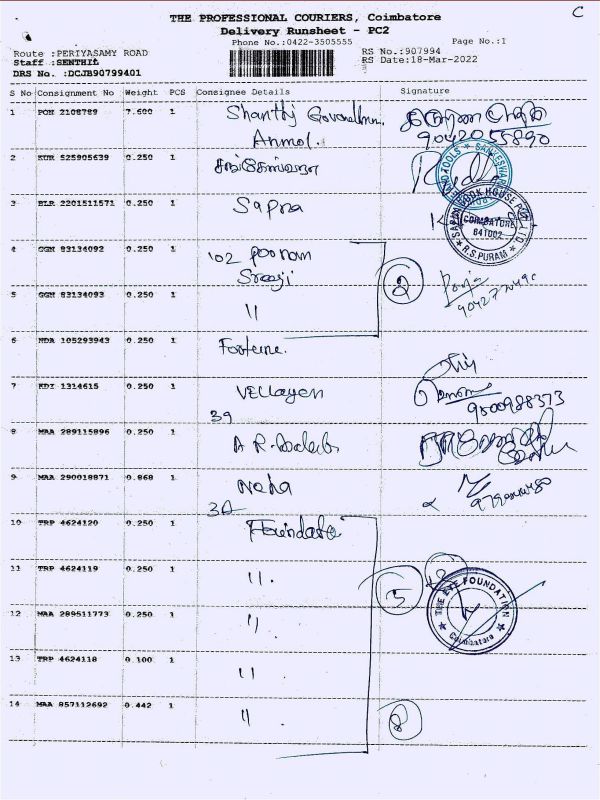 C
THE PROFESSIONAL COURIERS, Coimbatore
Delivery Runsheet - PC2
Phone No.:0422-3505555 Page No.:1
Route :PERIYASAMY ROAD RS No.:907994
Staff :SENTHIL RS Date:18-Mar-2022
DRS No. :DCJB90799401
S No Consignment No Weight PCS Consignee Details Signature
1 PON 2108789 7.600 1 Shanthy
Anmol.
2 KUR 525905639 0.250 1
3 BLR 2201511571 0.250 1 Sapna
SAPNA BOOK HOUSE PVT. LTD.
COIMBATORE
641002
R.S.PURAM
4 GGN 83134092 0.250 1 102 Poonam
Sreeji
5 GGN 83134093 0.250 1 11 2
6 NDA 105293943 0.250 1
7 KDI 1314615 0.250 1 Vellayan
39 9500988373
8 MAA 289115896 0.250 1 A R
9 MAA 290018871 0.868 1 Neha
3A
10 TRP 4624120 0.250 1
11 TRP 4624119 0.250 1 11. 5
THE EYE FOUNDATION
Coimbatore
12 MAA 289511773 0.250 1 11.
13 TRP 4624118 0.100 1 11.
14 MAA 857112692 0.442 1 11. 8